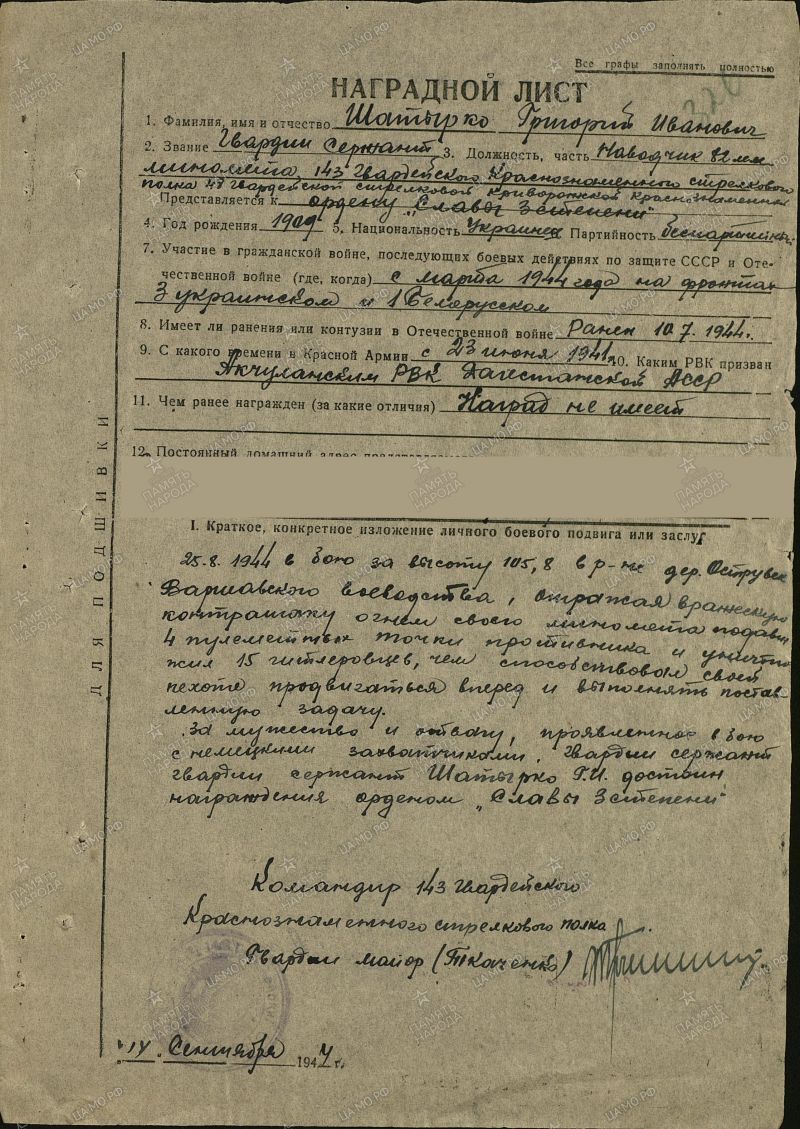 Все графы заполнять полностью
НАГРАДНОЙ ЛИСТ
1. Фамилия, имя и отчество Шатырко Григорий Иванович
2. Звание Гвардии Сержант 3. Должность, часть Наводчик 82 мм
миномета, 143 Гвардейского Краснознаменного стрелкового
полка 48 Гвардейской стрелковой Криворожской Краснознаменной
Представляется к ордену „Славы 3 степени"
4. Год рождения 1909 5. Национальность Украинец Партийность беспартийный
7. Участие в гражданской войне, последующих боевых действиях по защите СССР и Оте-
чественной войне (где, когда) с марта 1944 года на фронтах
3 украинском и 1 Белорусском
8. Имеет ли ранения или контузии в Отечественной войне Ранен 10.7.1944г.
9. С какого времени в Красной Армии с 23 июня 1941г. 10. Каким РВК призван
Акчуланским РВК Дагестанской АССР
11. Чем ранее награжден (за какие отличия) Наград не имеет
12. Постоянный домашний адрес
I. Краткое, конкретное изложение личного боевого подвига или заслуг
25.8.1944 в бою за высоту 105,8 в р-не дер. Острувек
Варшавского воеводства, отражая вражескую
контратаку огнем своего миномета подавил
4 пулеметных точки противника и уничто
жил 15 гитлеровцев, чем способствовал своей
пехоте продвигаться вперед и выполнять постав-
ленную задачу.
За мужество и отвагу, проявленное в бою
с немецкими захватчиками, гвардии сержант
гвардии сержант Шатырко Г.И. достоин
награждения орденом „Славы 3 степени"
Командир 143 Гвардейского
Краснознаменного стрелкового полка
Гвардии майор (Ткаченко)
14 Сентября 1944 г.
ДЛЯ ПОДШИВКИ
ПАМЯТЬ НАРОДА
ЦАМО.РФ